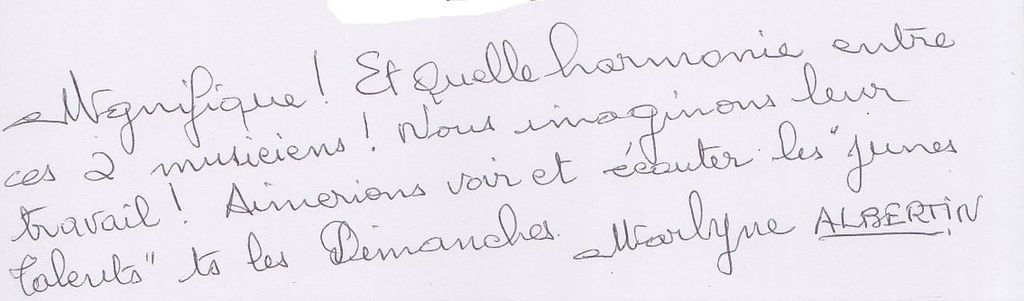 Magnifique ! Et quelle harmonie entre
ces 2 musiciens ! Nous imaginons leur
travail ! Aimerions voir et écouter les "junes
talents" ts les Dimanches. Marlyne ALBERTIN